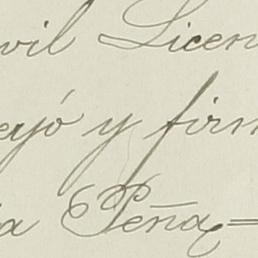 vil Licen
eyó y firm
a Peña=